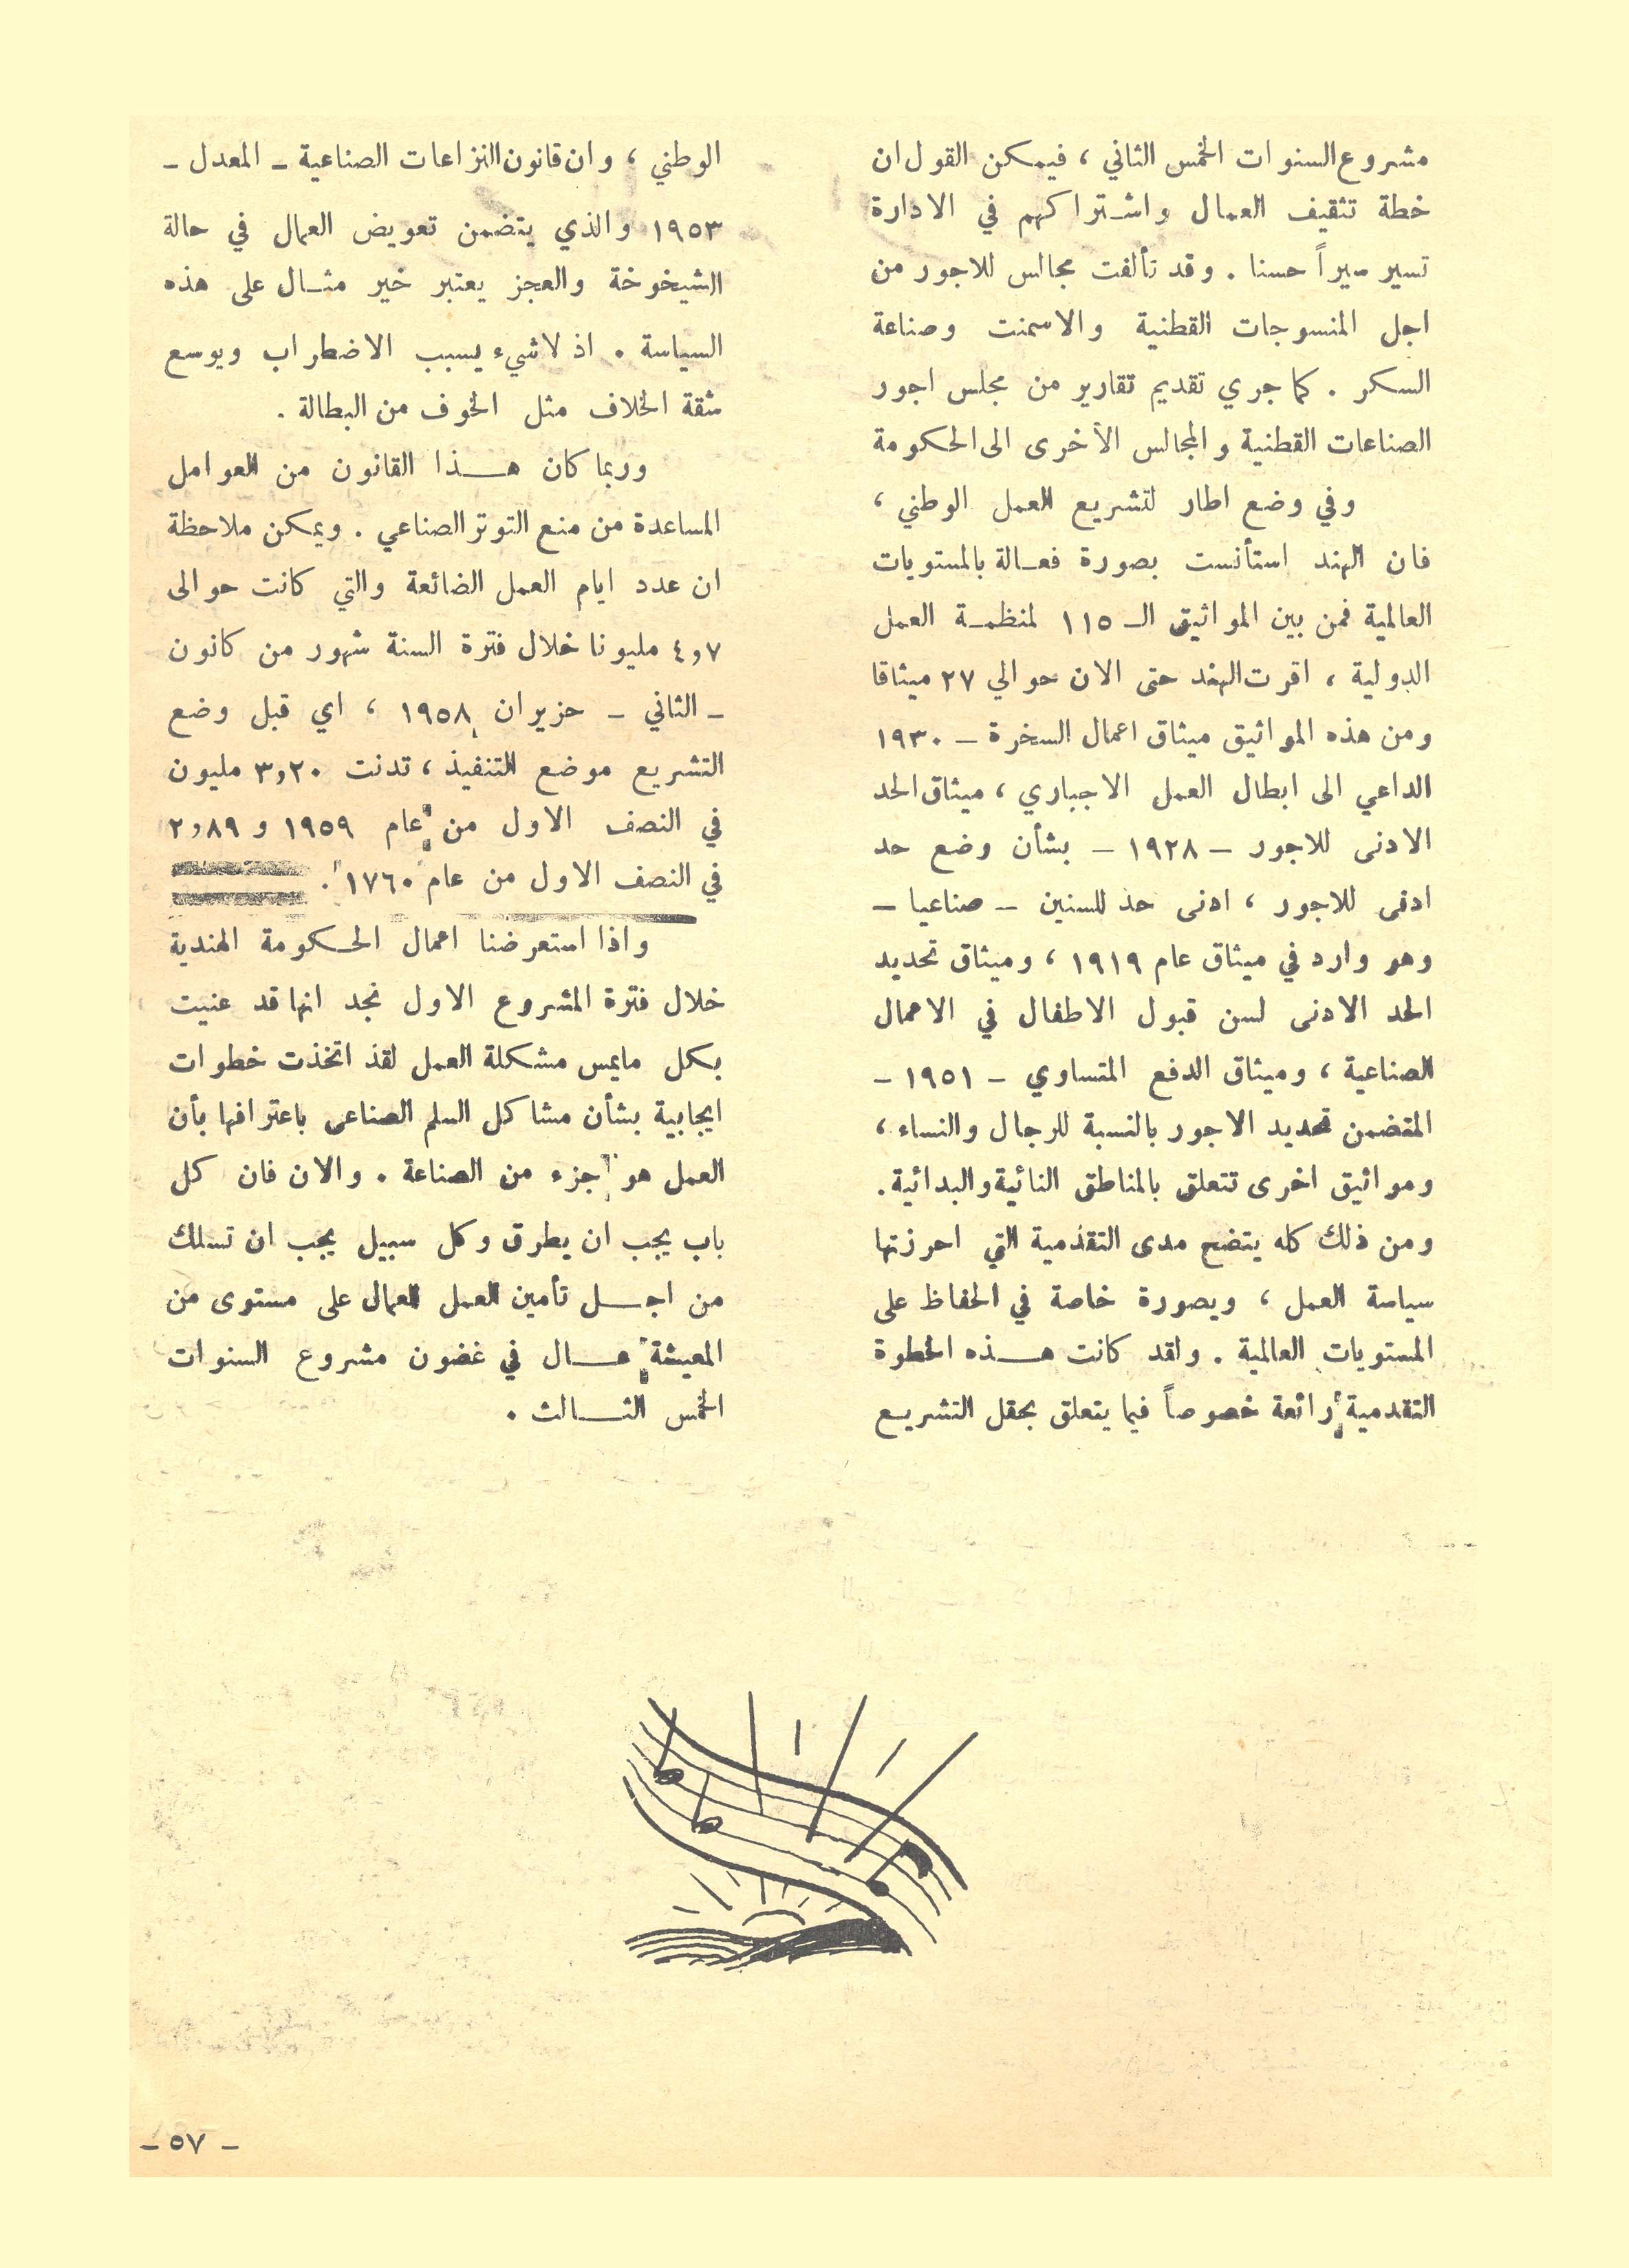 مشروع السنوات الخمس الثاني ، فيمكن القول ان
خطة تثقيف العمال واشتراكهم في الادارة
تسير سيراً حسنا . وقد تألفت مجالس للاجور من
اجل المنسوجات القطنية والاسمنت وصناعة
السكر . كما جري تقديم تقارير من مجلس اجور
الصناعات القطنية والمجالس الأخرى الى الحكومة
وفي وضع اطار لتشريع العمل الوطني ،
فان الهند استأنست بصورة فعالة بالمستويات
العالمية فمن بين المواثيق الـ ١١٥ لمنظمة العمل
الدولية ، اقرت الهند حتى الان حوالي ٢٧ ميثاقا
ومن هذه المواثيق ميثاق اعمال السخرة – ١٩٣٠
الداعي الى ابطال العمل الاجباري ، ميثاق الحد
الادنى للاجور – ١٩٢٨ – بشأن وضع حد
ادنى للاجور ، ادنى حد للسنين – صناعيا –
وهو وارد في ميثاق عام ١٩١٩ ، وميثاق تحديد
الحد الادنى لسن قبول الاطفال في الاعمال
الصناعية ، وميثاق الدفع المتساوي – ١٩٥١ –
المتضمن تحديد الاجور بالنسبة للرجال والنساء ،
ومواثيق اخرى تتعلق بالمناطق النائية والبدائية .
ومن ذلك كله يتضح مدى التقدمية التي احرزتها
سياسة العمل ، وبصورة خاصة في الحفاظ على
المستويات العالمية . ولقد كانت هذه الخطوة
التقدمية رائعة خصوصاً فيما يتعلق بحقل التشريع
الوطني ، وان قانون النزاعات الصناعية – المعدل –
١٩٥٣ والذي يتضمن تعويض العمال في حالة
الشيخوخة والعجز يعتبر خير مثال على هذه
السياسة . اذ لاشيء يسبب الاضطراب ويوسع
شقة الخلاف مثل الخوف من البطالة .
وربما كان هذا القانون من العوامل
المساعدة من منع التوتر الصناعي . ويمكن ملاحظة
ان عدد ايام العمل الضائعة والتي كانت حوالى
٤,٧ مليونا خلال فترة السنة شهور من كانون
– الثاني – حزيران ١٩٥٨ ، اي قبل وضع
التشريع موضع التنفيذ ، تدنت ٣,٢٠ مليون
في النصف الاول من عام ١٩٥٩ و ٢,٨٩
في النصف الاول من عام ١٧٦٠ .
واذا استعرضنا اعمال الحكومة الهندية
خلال فترة المشروع الاول نجد انها قد عنيت
بكل مايمس مشكلة العمل لقد اتخذت خطوات
ايجابية بشأن مشاكل السلم الصناعى باعترافها بأن
العمل هو جزء من الصناعة . والان فان كل
باب يجب ان يطرق وكل سبيل يجب ان تسلك
من اجل تأمين العمل للعمال على مستوى من
المعيشة عال في غضون مشروع السنوات
الخمس الثالث .
– ٥٧ –